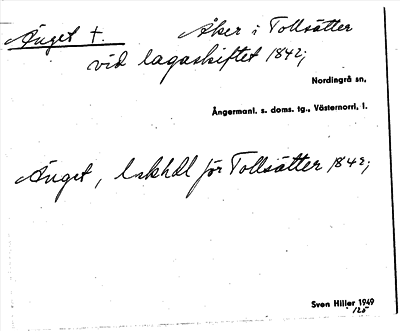 Änget †. Åker i Tollsätter
vid lagaskiftet 1842;
Nordingrå sn,
Ångermanl. s. doms. tg., Västernorrl. l.
Änget, lskhdl för Tollsätter 1842;
Sven Hiller 1949
125